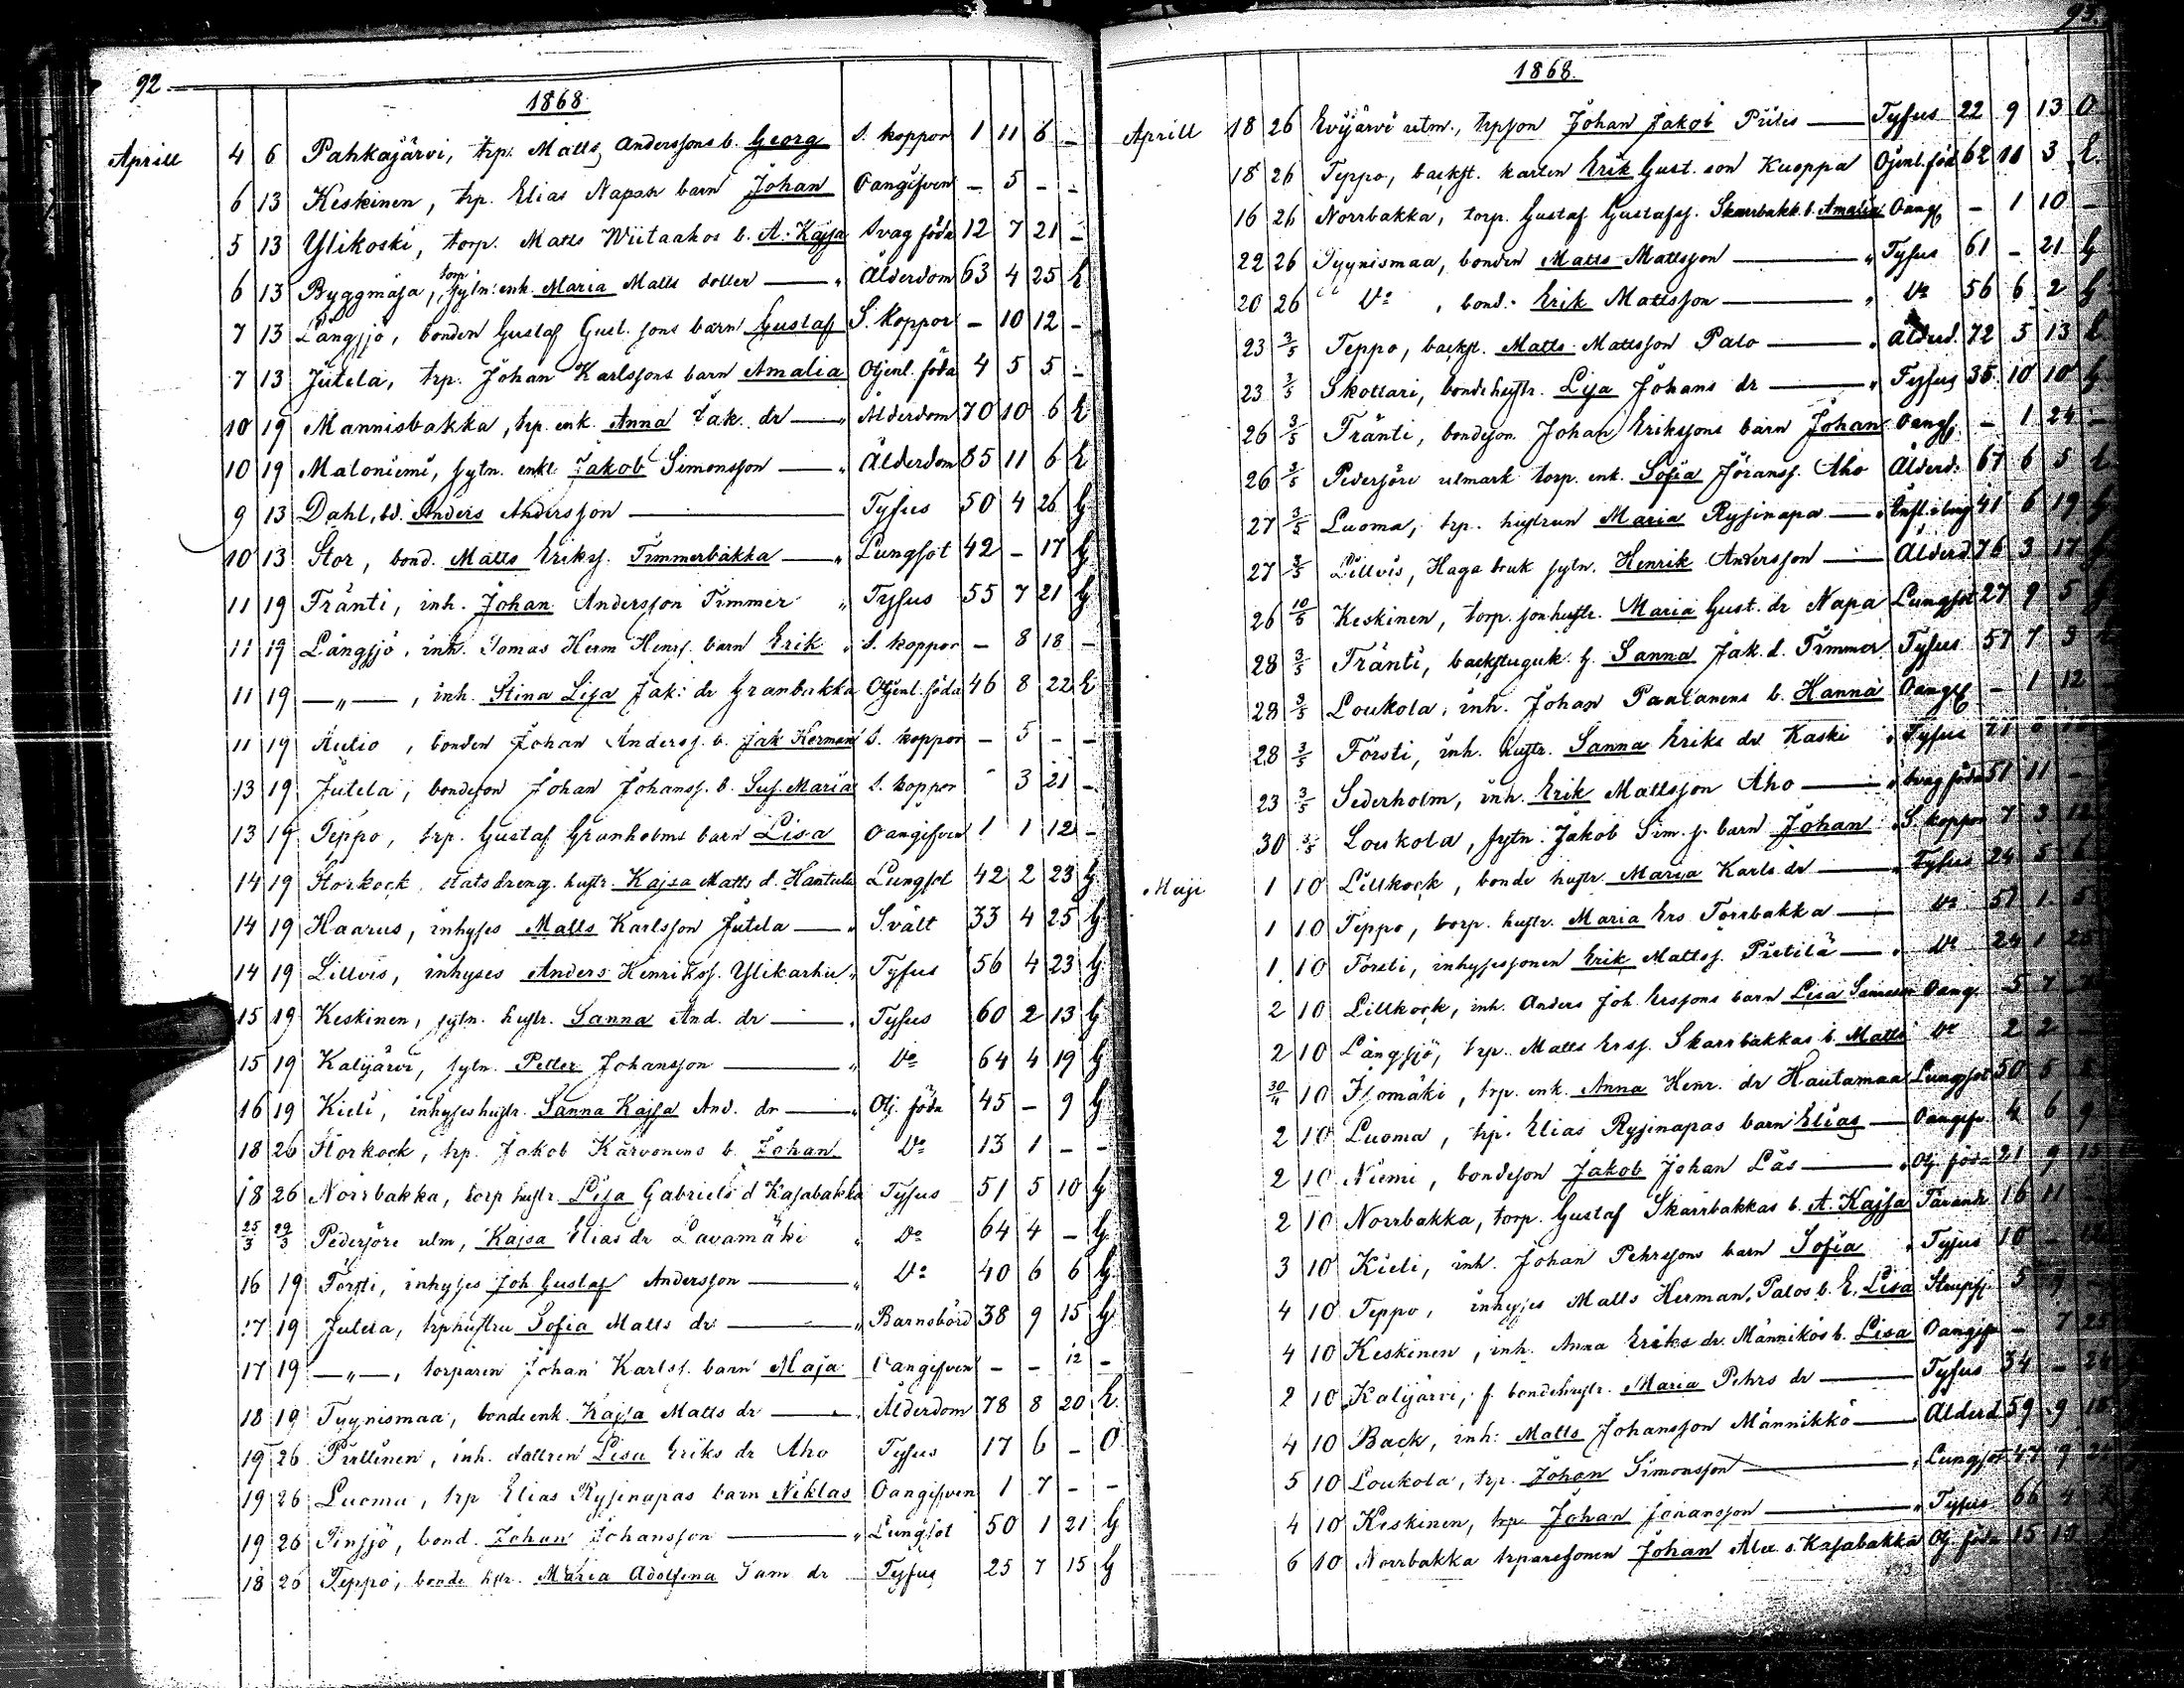 92
1868.
Aprill 4 6 Pahkajärvi, trp. Matts Anderssons b. Georg S. koppor 1 11 6 -
6 13 Keskinen, trp. Elias Napas barn Johan Oangifven - 5 - -
5 13 Ylikoski, torp. Matts Wiitaahos b. A. Kajsa Svag föda 12 7 21 -
6 13 Byggmäsa, torp sytn: enk. Maria Matts dotter — " Ålderdom 63 4 25 E
7 13 Långsjö, bonden Gustaf Gust. sons barn Gustaf S. Koppor - 10 12 -
7 13 Jutela, trp. Johan Karlssons barn Amalia Otjenl. föda 4 5 5 -
10 19 Mannisbakka, trp. enk. Anna Jak. dr — " Ålderdom 70 10 6 E
10 19 Maloniemi, sytn. enkl. Jakob Simonsson — " Ålderdom 85 11 6 E
9 13 Dahl, bd. Anders Andersson — Tyfus 50 4 26 G
10 13 Stor, bond. Matts Erikss. Timmerbakka — " Lungsot 42 - 17 G
11 19 Tränti, inh. Johan Andersson Timmer " Tyfus 55 7 21 G
11 19 Långsjö, inh. Tomas Herm Henrs. barn Erik " S. koppor - 8 18 -
11 19 —"—, inh. Stina Lisa Jak: dr Granbakka Otjenl. föda 46 8 22 E
11 19 Aulio, bonden Johan Anderss. b. Jak Herman S. koppor - 5 - -
13 19 Jutela, bondeson Johan Johanss. b. Sus. Maria S. koppor - 3 21 -
13 19 Teppo, trp. Gustaf Granholms barn Lisa Oangifven 1 1 12 -
14 19 Storkock, statsdreng. hustr. Kajsa Matts d. Hantula Lungsot 42 2 23 G
14 19 Haarus, inhyses Matts Karlsson Jutela — " Svält 33 4 25 G
14 19 Lillvis, inhyses Anders Henrikss. Ylikarhu " Tyfus 56 4 23 G
15 19 Keskinen, sytn. hustr. Sanna And. dr — " Tyfus 60 2 13 G
15 19 Kalijärvi, sytn. Petter Johansson — " Do 64 4 19 G
16 19 Kieli, inhyseshustr. Sanna Kajsa And. dr — " Otj. föda 45 - 9 G
18 26 Storkock, trp. Jakob Karvonens b. Johan Do 13 1 - -
18 26 Norrbakka, torp hustr. Lisa Gabriels d Kasabakka Tyfus 51 5 10 G
25/3 29/3 Pedersöre utm, Kajsa Elias dr Lavamäki " Do 64 4 - G
16 19 Försti, inhyses Joh. Gustaf Andersson — " Do 40 6 6 G
17 19 Jutela, trphustru Sofia Matts dr — " Barnsbörd 38 9 15 G
17 19 —"—, torparen Johan Karlss. barn Maja Oangifven - - 12 -
18 19 Tyynismaa, bondeenk. Kajsa Matts dr — " Ålderdom 78 8 20 E.
19 26 Purllinen, inh. dottren Lisa Eriks dr Aho Tyfus 17 6 - O
19 26 Luoma, trp Elias Rysinapas barn Niklas Oangifven 1 7 - -
19 26 Pinsjö, bond. Johan Johansson — " Lungsot 50 1 21 G
18 26 Teppo, bonde hstr. Maria Adolfina Sam dr Tyfus 25 7 15 G
93.
1868.
Aprill 18 26 Evijärvi utm., trpson Johan Jakob — Tyfus 22 9 13 O
18 26 Teppo, backst. karlen Erik Gust. son Kuoppa Otjenl. föd 62 11 3 E.
16 26 Norrbakka, torp. Gustaf Gustafss. Skarrbakk. b. Amalia Oangf - 1 10 -
22 26 Tyynismaa, bonden Matts Mattsson — " Tyfus 61 - 21 G
20 26 Do, bond. Erik Mattsson — " Do 56 6 2 G
23 3/5 Teppo, backst. Matts Mattsson Palo — " Ålderd. 72 5 13 E.
23 3/5 Skottari, bondehustr. Lisa Johans dr — " Tyfus 35 10 10 G
26 3/5 Tränti, bondeson Johan Erikssons barn Johan Oangf - 1 24 -
26 3/5 Pedersöre utmark torp. enk. Sofia Göranss. Aho Ålderd. 67 6 5 E
27 3/5 Luoma, trp. hustrun Maria Rysinapa — " Infl. i lung 41 6 19 G
27 3/5 Lillvis, Haga bruk sytn. Henrik Andersson — Ålderd 76 3 17
26 10/5 Keskinen, torp. sonhustr. Maria Gust. dr Napa Lungsot 27 9 5
28 3/5 Tränti, backstuguk. h. Sanna Jak. d. Timmer Tyfus 57 7 3
28 3/5 Loukola, inh. Johan Paalanens b. Hanna Oangf - 1 12
28 3/5 Försti, inh. hustr. Sanna Eriks dr Kaski " Tyfus
23 3/5 Sederholm, inh. Erik Mattsson Aho — " Svag föda 51 11 -
30 3/5 Loukola, sytn. Jakob Sim. s. barn Johan " S. koppor 7 3 12
Maji 1 10 Lillkock, bonde hustr. Maria Karls dr — " Tyfus 24 5 6
1 10 Teppo, torp. hustr. Maria Ers. Torrbakka — Do 57 1 5
1 10 Försti, inhysessonen Erik Mattss. Pietilä — " Do 24 1 25
2 10 Lillkock, inh. Anders Joh. Erssons barn Lisa Oang. 5 7
2 10 Långsjö, trp. Matts Erss. Skarrbakkas b. Matts Do 2 2
30/4 10 Isomäki, trp. enk. Anna Henr. dr Hautamaa Lungsot 50 5
2 10 Luoma, trp. Elias Rysinapas barn Elias — Oangif. 4 6 9
2 10 Niemi, bondeson Jakob Johan Lås — " Otj. föda 21 9 15
2 10 Norrbakka, torp. Gustaf Skarrbakkas b. A. Kajsa 16 11
3 10 Kieli, inh. Johan Pehrssons barn Sofia " Tyfus 10 -
4 10 Teppo, inhyses Matts Herman. Palos b. E. Lisa Strupsj. 5 9
4 10 Keskinen, inh. Anna Eriks dr. Männikös b. Lisa Oangif - 7 25
2 10 Kalijärvi, f. bondehustr. Maria Pehrs dr — Tyfus 34 -
4 10 Back, inh: Matts Johansson Männikkö — Ålderd. 59 9
5 10 Loukola, trp. Johan Simonsson — " Lungsot 47 9
4 10 Keskinen, trp Johan Johansson — " Tyfus 66 4
6 10 Norrbakka trparesonen Johan Alex. s. Kasabakka Otj. föda 15 10